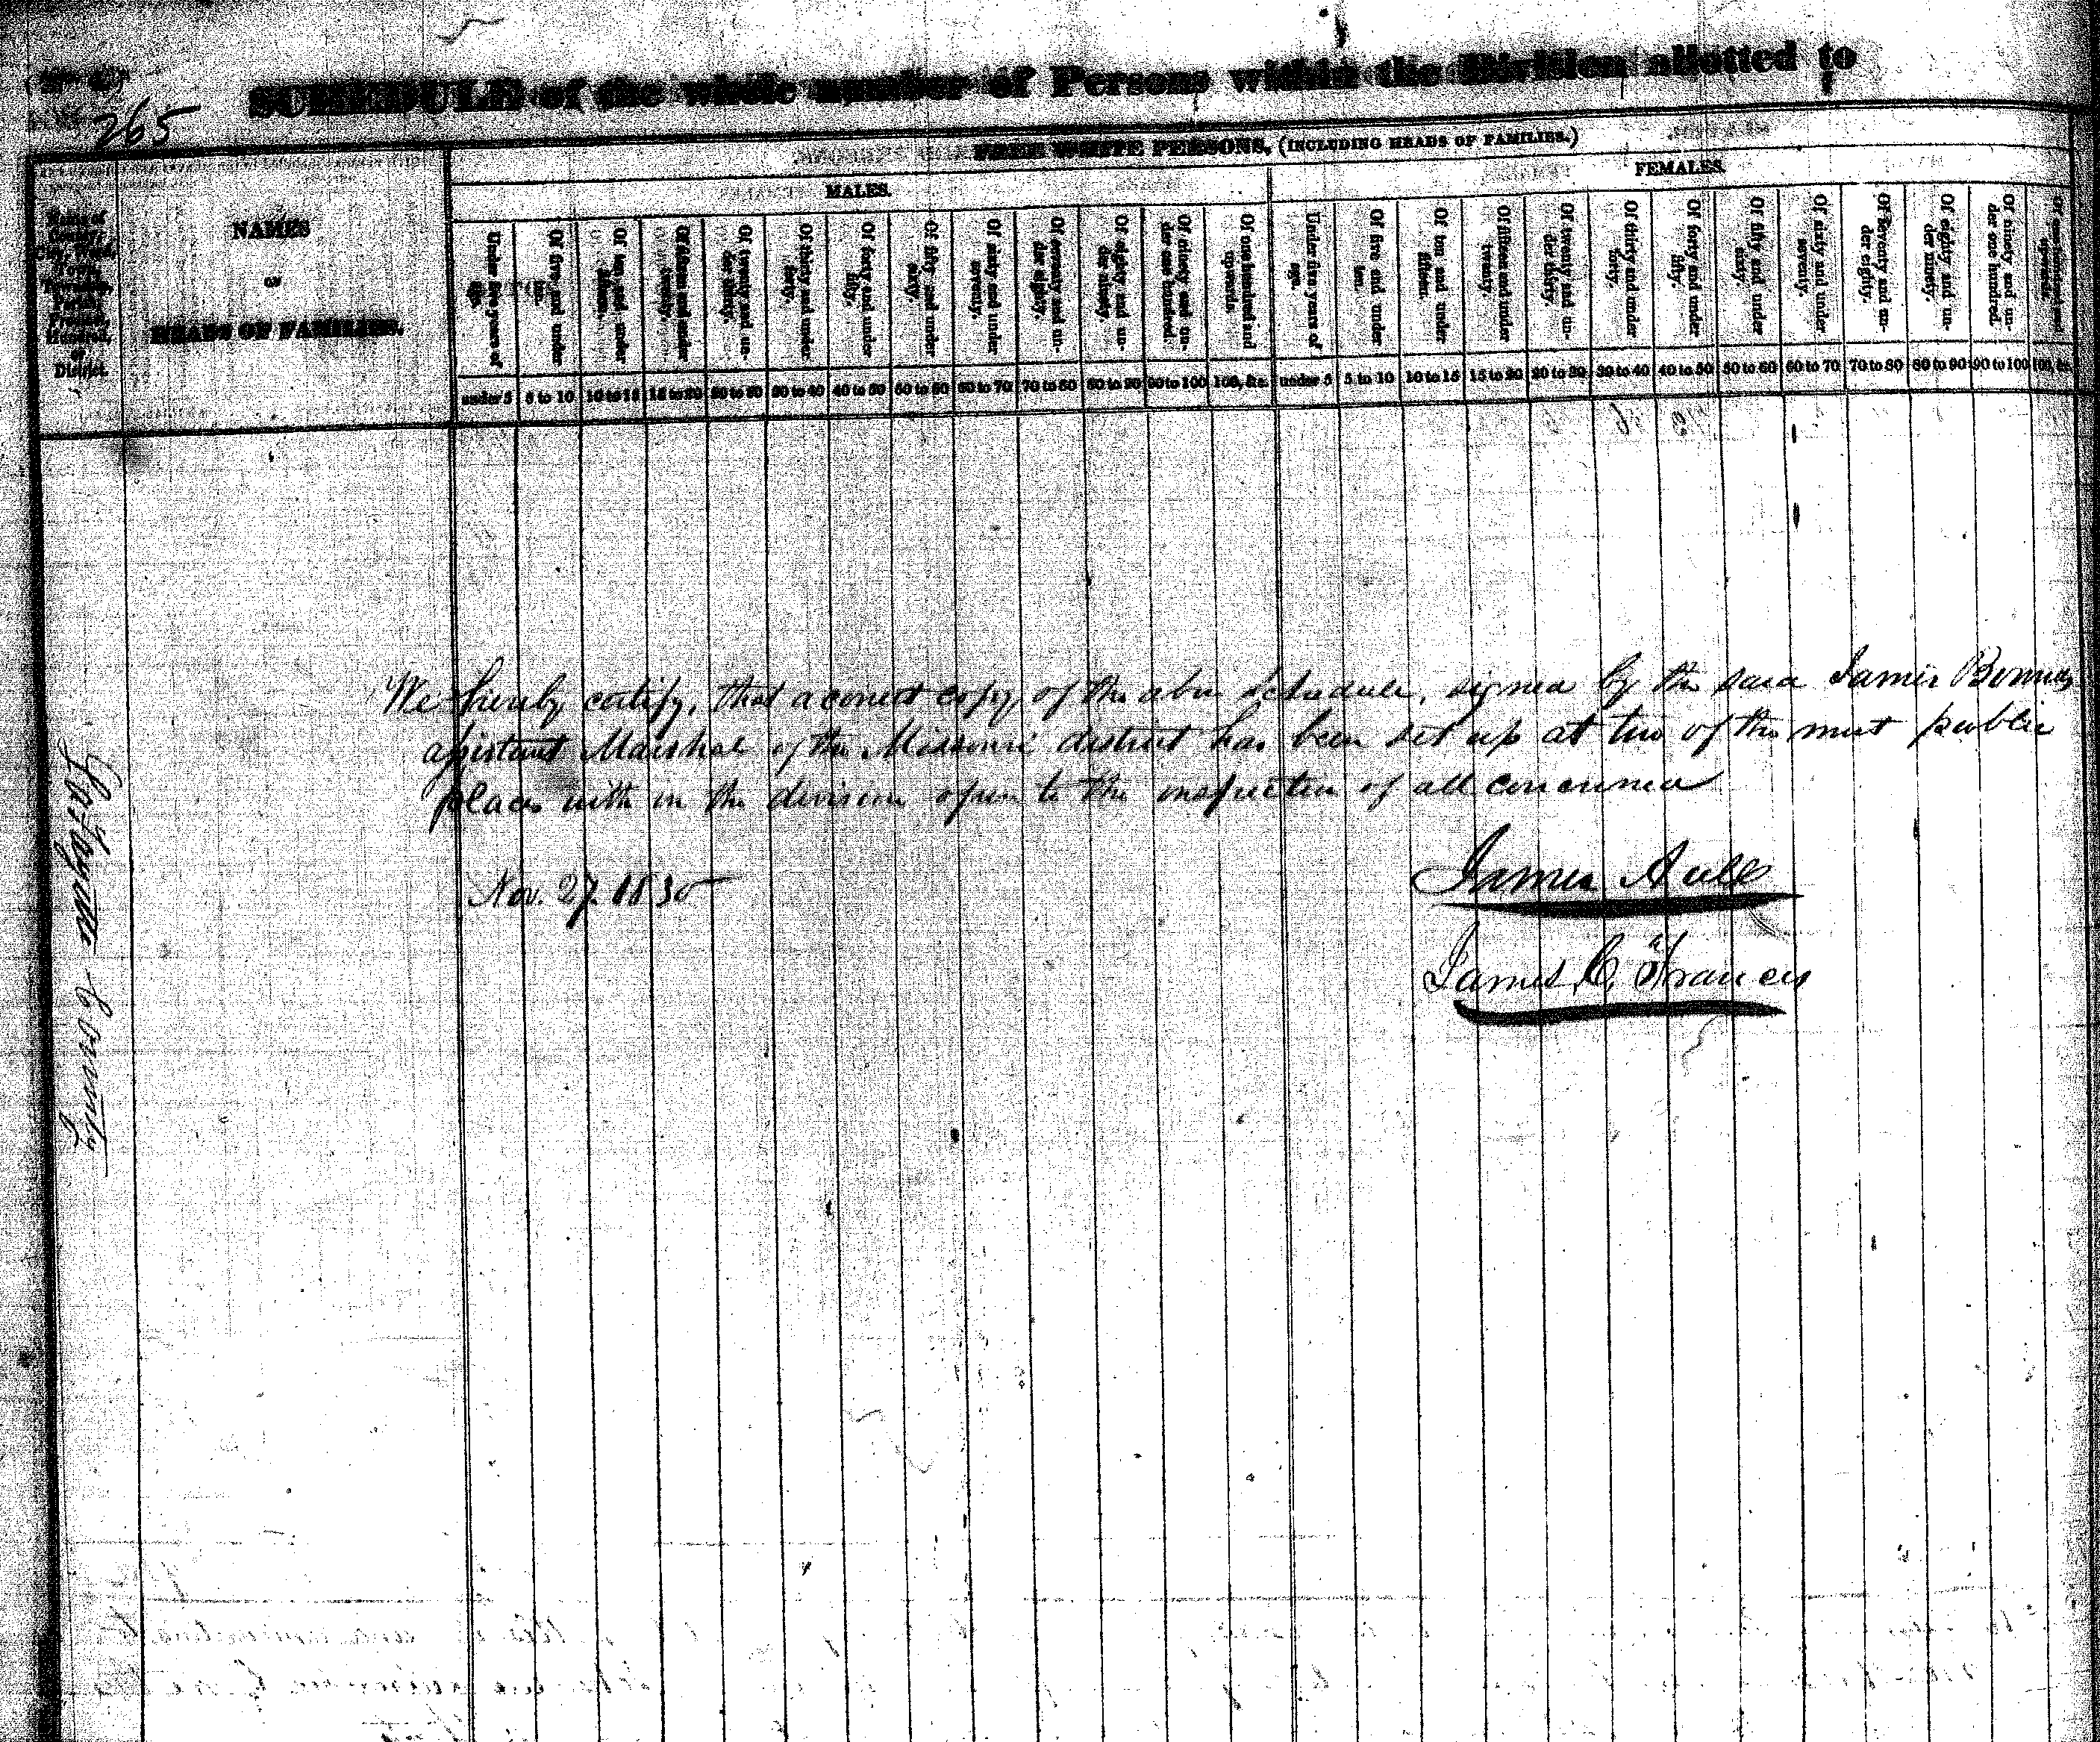 265
SCHEDULE of the whole number of Persons within the Division allotted to
FREE WHITE PERSONS, (INCLUDING HEADS OF FAMILIES.)
MALES.
FEMALES.
Name of County, City, Ward, Town, Township, Parish, Precinct, Hundred, or District.
NAMES
OF
HEADS OF FAMILIES.
Under five years of age.
Of five and under ten.
Of ten and under fifteen.
Of fifteen and under twenty.
Of twenty and under thirty.
Of thirty and under forty.
Of forty and under fifty.
Of fifty and under sixty.
Of sixty and under seventy.
Of seventy and under eighty.
Of eighty and under ninety.
Of ninety and under one hundred.
Of one hundred and upwards.
Under five years of age.
Of five and under ten.
Of ten and under fifteen.
Of fifteen and under twenty.
Of twenty and under thirty.
Of thirty and under forty.
Of forty and under fifty.
Of fifty and under sixty.
Of sixty and under seventy.
Of seventy and under eighty.
Of eighty and under ninety.
Of ninety and under one hundred.
Of one hundred and upwards.
under 5 5 to 10 10 to 15 15 to 20 20 to 30 30 to 40 40 to 50 50 to 60 60 to 70 70 to 80 80 to 90 90 to 100 100, &c. under 5 5 to 10 10 to 15 15 to 20 20 to 30 30 to 40 40 to 50 50 to 60 60 to 70 70 to 80 80 to 90 90 to 100 100, &c.
We hereby certify, that a correct copy of the above schedule, signed by the said James
assistant Marshal of the Missouri district has been set up at two of the most public
places with in the division open to the inspection of all concerned
Nov. 27. 1830
James Aull
James C. Francis
La Fayette County